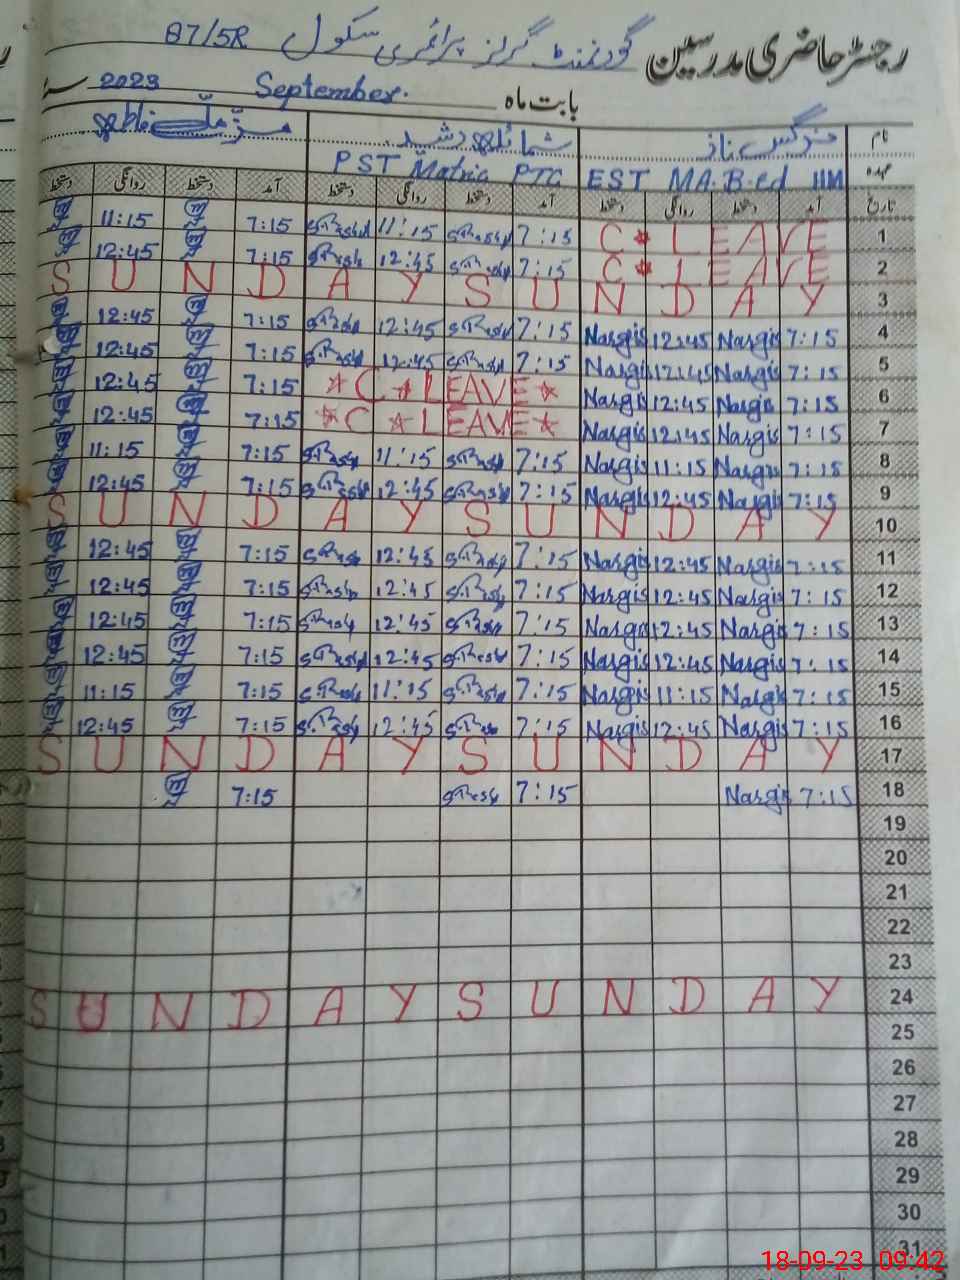 رجسٹر حاضری مدرسین گورنمنٹ گرلز پرائمری سکول 87/5R
بابت ماہ September. 2023
نام نرگس ناز شمائلہ رشید
عہدہ EST MA.B-ed HM PST Matric PTC
تاریخ آمد دستخط روانگی دستخط آمد دستخط روانگی دستخط آمد دستخط روانگی دستخط
1 C * LEAVE 7:15 11:15 7:15 11:15
2 C * LEAVE 7:15 12:45 7:15 12:45
3 SUNDAY SUNDAY
4 7:15 Nargis 12:45 Nargis 7:15 12:45 7:15 12:45
5 7:15 Nargis 12:45 Nargis 7:15 12:45 7:15 12:45
6 7:15 Nargis 12:45 Nargis * C * LEAVE * 7:15 12:45
7 7:15 Nargis 12:45 Nargis * C * LEAVE * 7:15 12:45
8 7:15 Nargis 11:15 Nargis 7:15 11:15 7:15 11:15
9 7:15 Nargis 12:45 Nargis 7:15 12:45 7:15 12:45
10 SUNDAY SUNDAY
11 7:15 Nargis 12:45 Nargis 7:15 12:45 7:15 12:45
12 7:15 Nargis 12:45 Nargis 7:15 12:45 7:15 12:45
13 7:15 Nargis 12:45 Nargis 7:15 12:45 7:15 12:45
14 7:15 Nargis 12:45 Nargis 7:15 12:45 7:15 12:45
15 7:15 Nargis 11:15 Nargis 7:15 11:15 7:15 11:15
16 7:15 Nargis 12:45 Nargis 7:15 12:45 7:15 12:45
17 SUNDAY SUNDAY
18 7:15 Nargis 7:15 7:15
19
20
21
22
23
24 SUNDAY SUNDAY
25
26
27
28
29
30
31
18-09-23 09:42